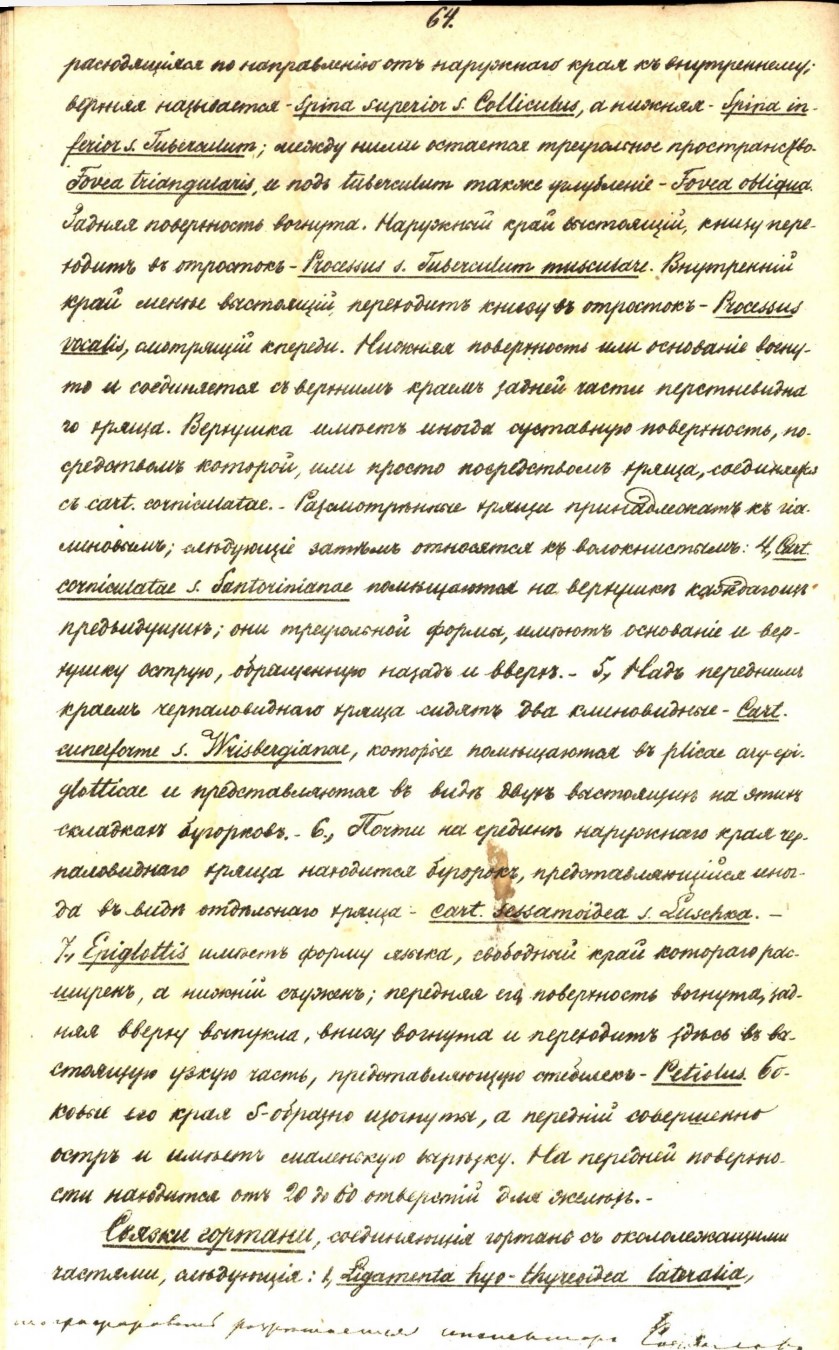 64.
расходящіяся по направленію отъ наружнаго края къ внутреннему;
верхняя называется - Spina superior s. Colliculus, а нижняя - Spina in-
ferior s. Tuberculum; между ними остается треугольное пространство-
Fovea triangularis, и подъ tuberculum также углубленіе - Fovea obliqua.
Задняя поверхность вогнута. Наружный край выстоящій, книзу пере-
ходитъ въ отростокъ - Processus s. Tuberculum musculare. Внутренній
край менѣе выстоящій переходитъ книзу въ отростокъ - Processus
vocalis, смотрящій кпереди. Нижняя поверхность или основаніе вогну-
то и соединяется съ верхнимъ краемъ задней части перстневидна
го хряща. Верхушка имѣетъ иногда суставную поверхность, по-
средствомъ которой, или просто посредствомъ хряща, соединяется
съ cart. corniculatae. - Разсмотрѣнные хрящи принадлежатъ къ гіа-
линовымъ; слѣдующіе затѣмъ относятся къ волокнистымъ: 4, Cart.
corniculatae s. Santorinianae помѣщаются на верхушкѣ каждаго изъ
предъидущихъ; они треугольной формы, имѣютъ основаніе и вер-
хушку острую, обращенную назадъ и вверхъ. - 5, Надъ переднимъ
краемъ черпаловиднаго хряща сидятъ два клиновидные - Cart.
cuneiforme s. Wrisbergianae, которые помѣщаются въ plicae ary-epi-
glotticae и представляются въ видѣ двухъ выстоящихъ на этихъ
складкахъ бугорковъ. - 6., Почти на срединѣ наружнаго края чер-
паловиднаго хряща находится бугорокъ, представляющійся иног-
да въ видѣ отдѣльнаго хряща - cart. sessamoidea s. Luschka. -
7., Epiglottis имѣетъ форму языка, свободный край котораго рас-
ширенъ, а нижній съуженъ; передняя его поверхность вогнута, зад-
няя вверху выпукла, внизу вогнута и переходитъ здѣсь въ вы-
стоящую узкую часть, представляющую стебелекъ - Petiolus. Бо-
ковые его края S-образно изогнуты, а передній совершенно
остръ и имѣетъ маленькую вырѣзку. На передней поверхно-
сти находится отъ 20 до 60 отверстій для железъ. -
Связки гортани, соединяющія гортань съ окололежащими
частями, слѣдующія: 1, Ligamenta hyo-thyreoidea lateralia,
разрѣшается